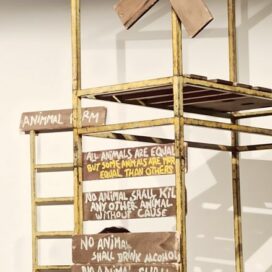 ANIMMAL F RM
ALL ANIMALS ARE EQUAL
BUT SOME ANIMALS ARE MOR
EQUAL THAN OTHERS
NO ANIMAL SHALL KIL
ANY OTHER ANIMAL
WITHOUT CAUSE
NO ANIMAL
SHALL DRINK ALCOHOL
NO ANIMAL SHALL